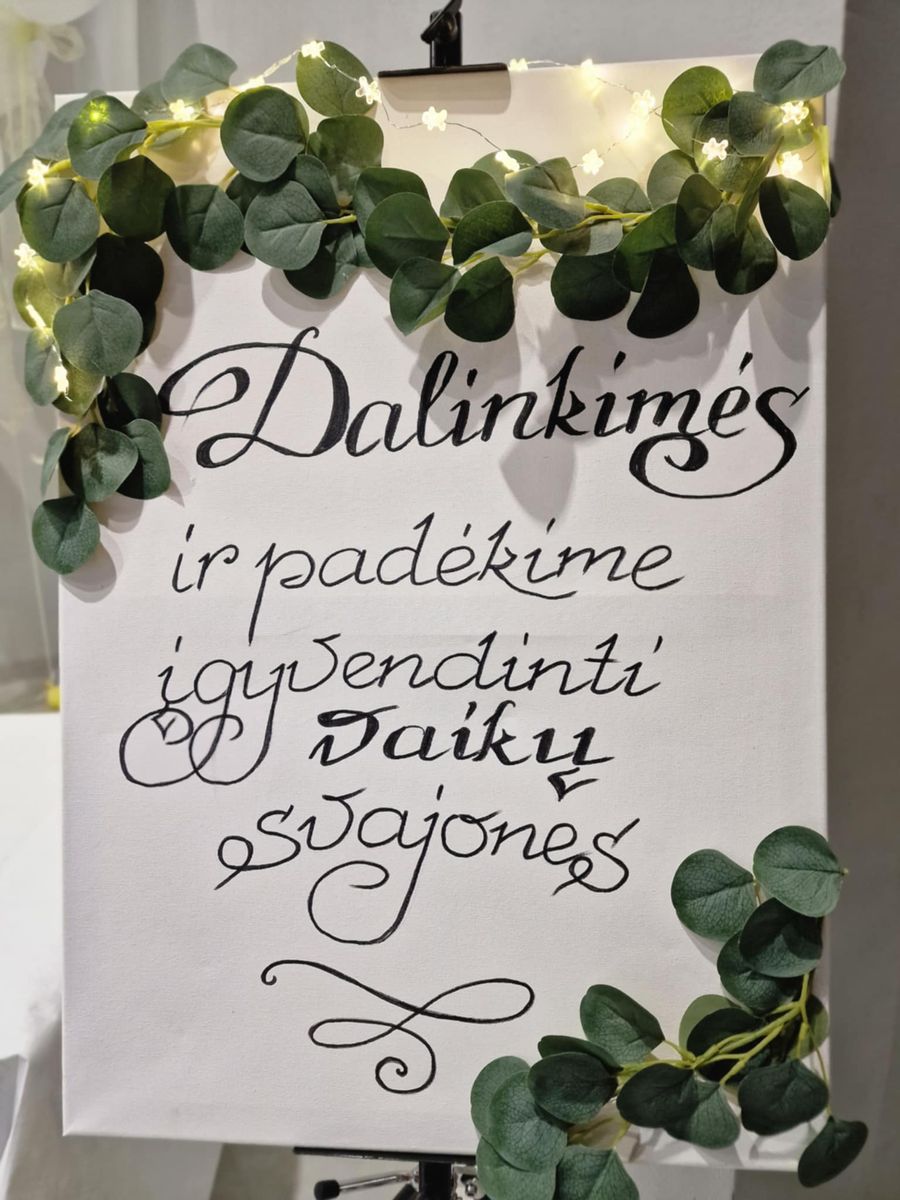 Dalinkimės
ir padėkime
įgyvendinti
vaikų
svajones